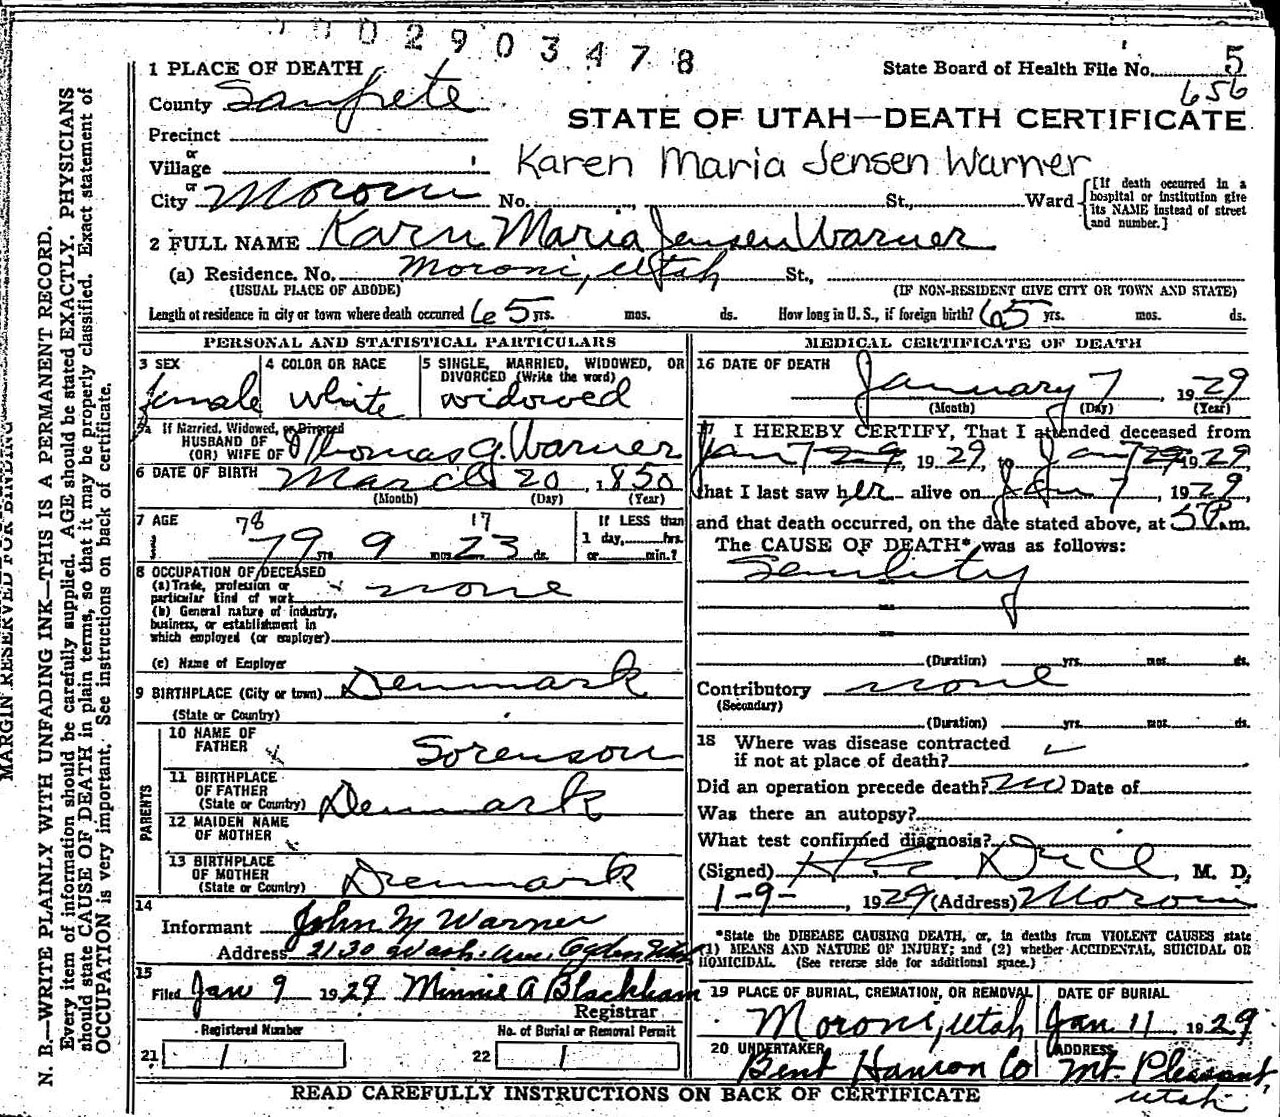 0 0 2 9 0 3 4 7 8
1 PLACE OF DEATH
State Board of Health File No. 5
656
County Sanpete
STATE OF UTAH—DEATH CERTIFICATE
Precinct
or
Village
Karen Maria Jensen Warner
or
City Moroni No. St., Ward
[If death occurred in a hospital or institution give its NAME instead of street and number.]
2 FULL NAME Karn Maria Jensen Warner
(a) Residence. No. Moroni, Utah St.,
(USUAL PLACE OF ABODE) (IF NON-RESIDENT GIVE CITY OR TOWN AND STATE)
Length of residence in city or town where death occurred 65 yrs. mos. ds. How long in U. S., if foreign birth? 65 yrs. mos. ds.
PERSONAL AND STATISTICAL PARTICULARS
3 SEX female
4 COLOR OR RACE white
5 SINGLE, MARRIED, WIDOWED, OR DIVORCED (Write the word) widowed
5a If Married, Widowed, or Divorced
HUSBAND OF
(OR) WIFE OF Thomas G. Warner
6 DATE OF BIRTH March 20, 1850
(Month) (Day) (Year)
7 AGE 78 17
79 yrs. 9 mos. 23 ds.
If LESS than
1 day, hrs.
or min.?
8 OCCUPATION OF DECEASED
(a) Trade, profession or
particular kind of work none
(b) General nature of industry,
business, or establishment in
which employed (or employer)
(c) Name of Employer
9 BIRTHPLACE (City or town) Denmark
(State or Country)
PARENTS
10 NAME OF
FATHER Sorenson
11 BIRTHPLACE
OF FATHER
(State or Country) Denmark
12 MAIDEN NAME
OF MOTHER
13 BIRTHPLACE
OF MOTHER
(State or Country) Denmark
14
Informant John M Warner
Address 2130 Wash. Ave. Ogden Utah
15
Filed Jan 9 1929 Minnie A Blackham
Registrar
Registered Number
21 1
No. of Burial or Removal Permit
22 1
MEDICAL CERTIFICATE OF DEATH
16 DATE OF DEATH January 7, 1929
(Month) (Day) (Year)
17 I HEREBY CERTIFY, That I attended deceased from
Jan 7 29, 1929, to Jan 7 29 1929
that I last saw her alive on Jan 7, 1929,
and that death occurred, on the date stated above, at 5 P. m.
The CAUSE OF DEATH* was as follows:
Senility
(Duration) yrs. mos. ds.
Contributory none
(Secondary)
(Duration) yrs. mos. ds.
18 Where was disease contracted
if not at place of death?
Did an operation precede death? no Date of
Was there an autopsy?
What test confirmed diagnosis?
(Signed) M. D.
1-9-, 1929 (Address) Moroni
*State the DISEASE CAUSING DEATH, or, in deaths from VIOLENT CAUSES state
(1) MEANS AND NATURE OF INJURY; and (2) whether ACCIDENTAL, SUICIDAL OR
HOMICIDAL. (See reverse side for additional space.)
19 PLACE OF BURIAL, CREMATION, OR REMOVAL
Moroni, Utah
DATE OF BURIAL
Jan. 11 1929
20 UNDERTAKER
Bent Hanson Co
ADDRESS
Mt. Pleasant, Utah
READ CAREFULLY INSTRUCTIONS ON BACK OF CERTIFICATE
MARGIN RESERVED FOR BINDING
N. B.—WRITE PLAINLY WITH UNFADING INK—THIS IS A PERMANENT RECORD.
Every item of information should be carefully supplied. AGE should be stated EXACTLY. PHYSICIANS
should state CAUSE OF DEATH in plain terms, so that it may be properly classified. Exact statement of
OCCUPATION is very important. See instructions on back of certificate.